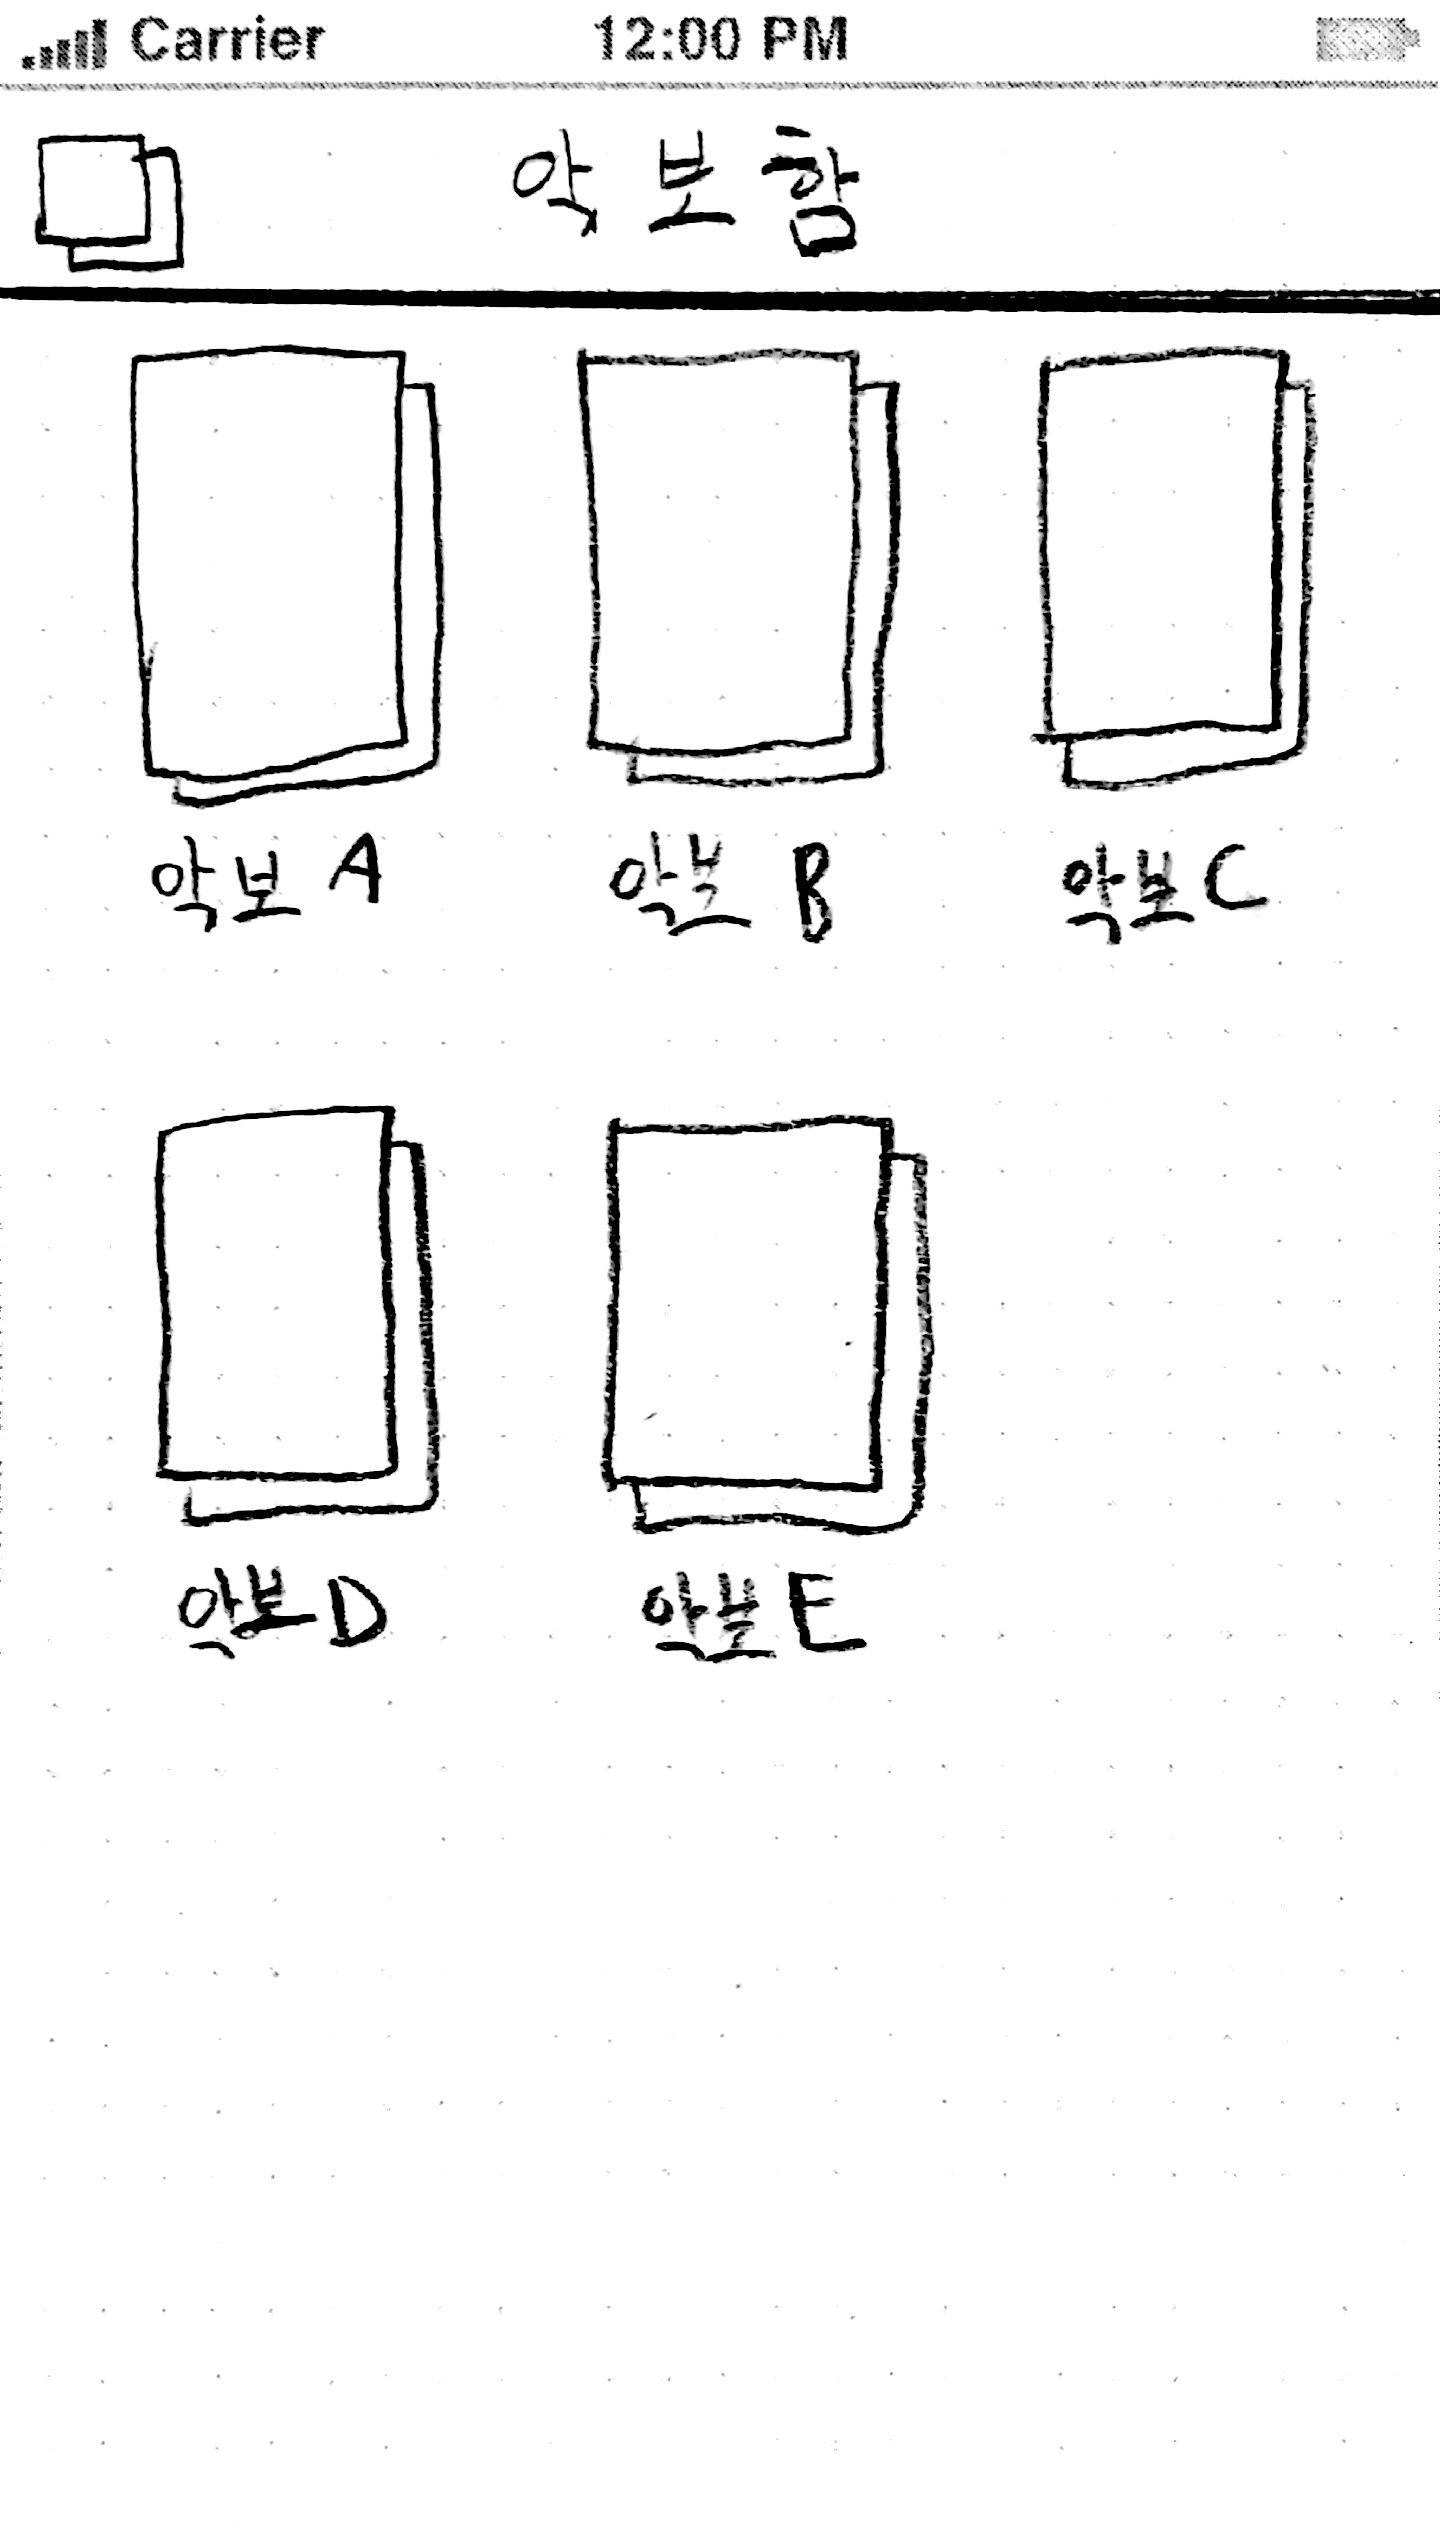 Carrier 12:00 PM
악보함
악보 A 악보 B 악보 C
악보 D 악보 E